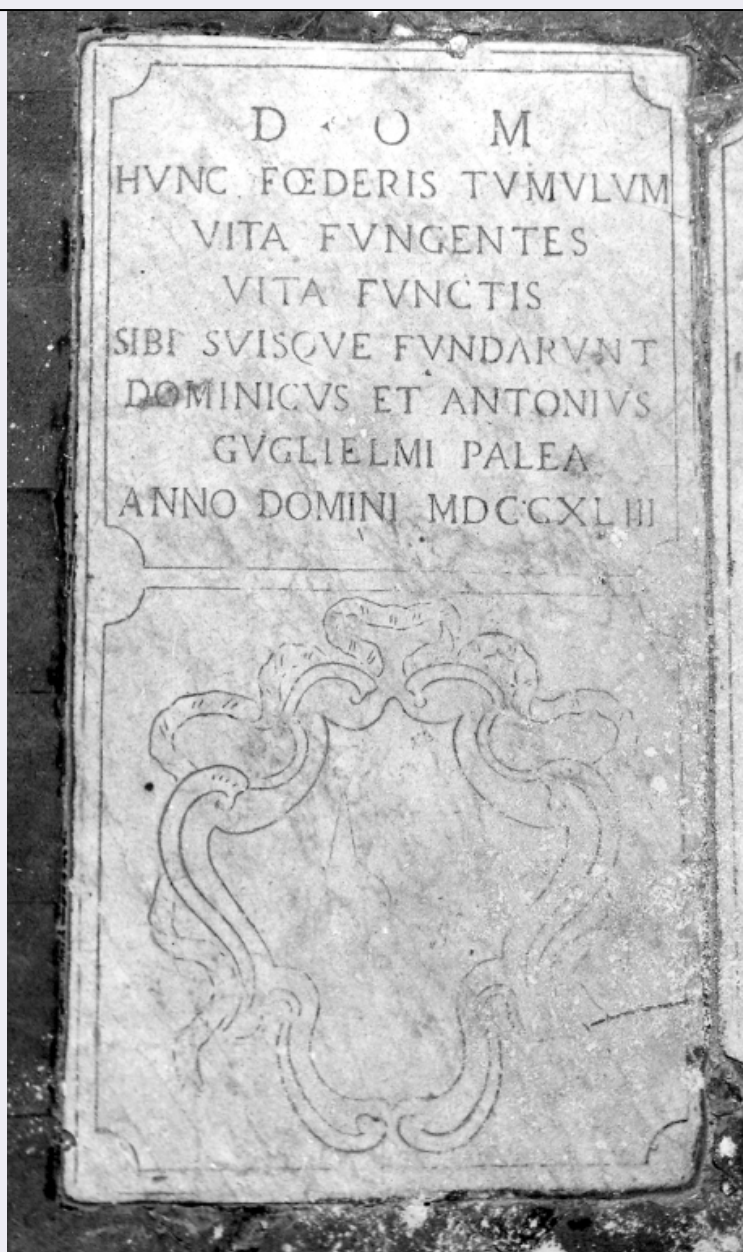 D · O M
HVNC FŒDERIS TVMVLVM
VITA FVNGENTES
VITA FVNCTIS
SIBI SVISQVE FVNDARVNT
DOMINICVS ET ANTONIVS
GVGLIELMI PALEA
ANNO DOMINI MDCCXLIII